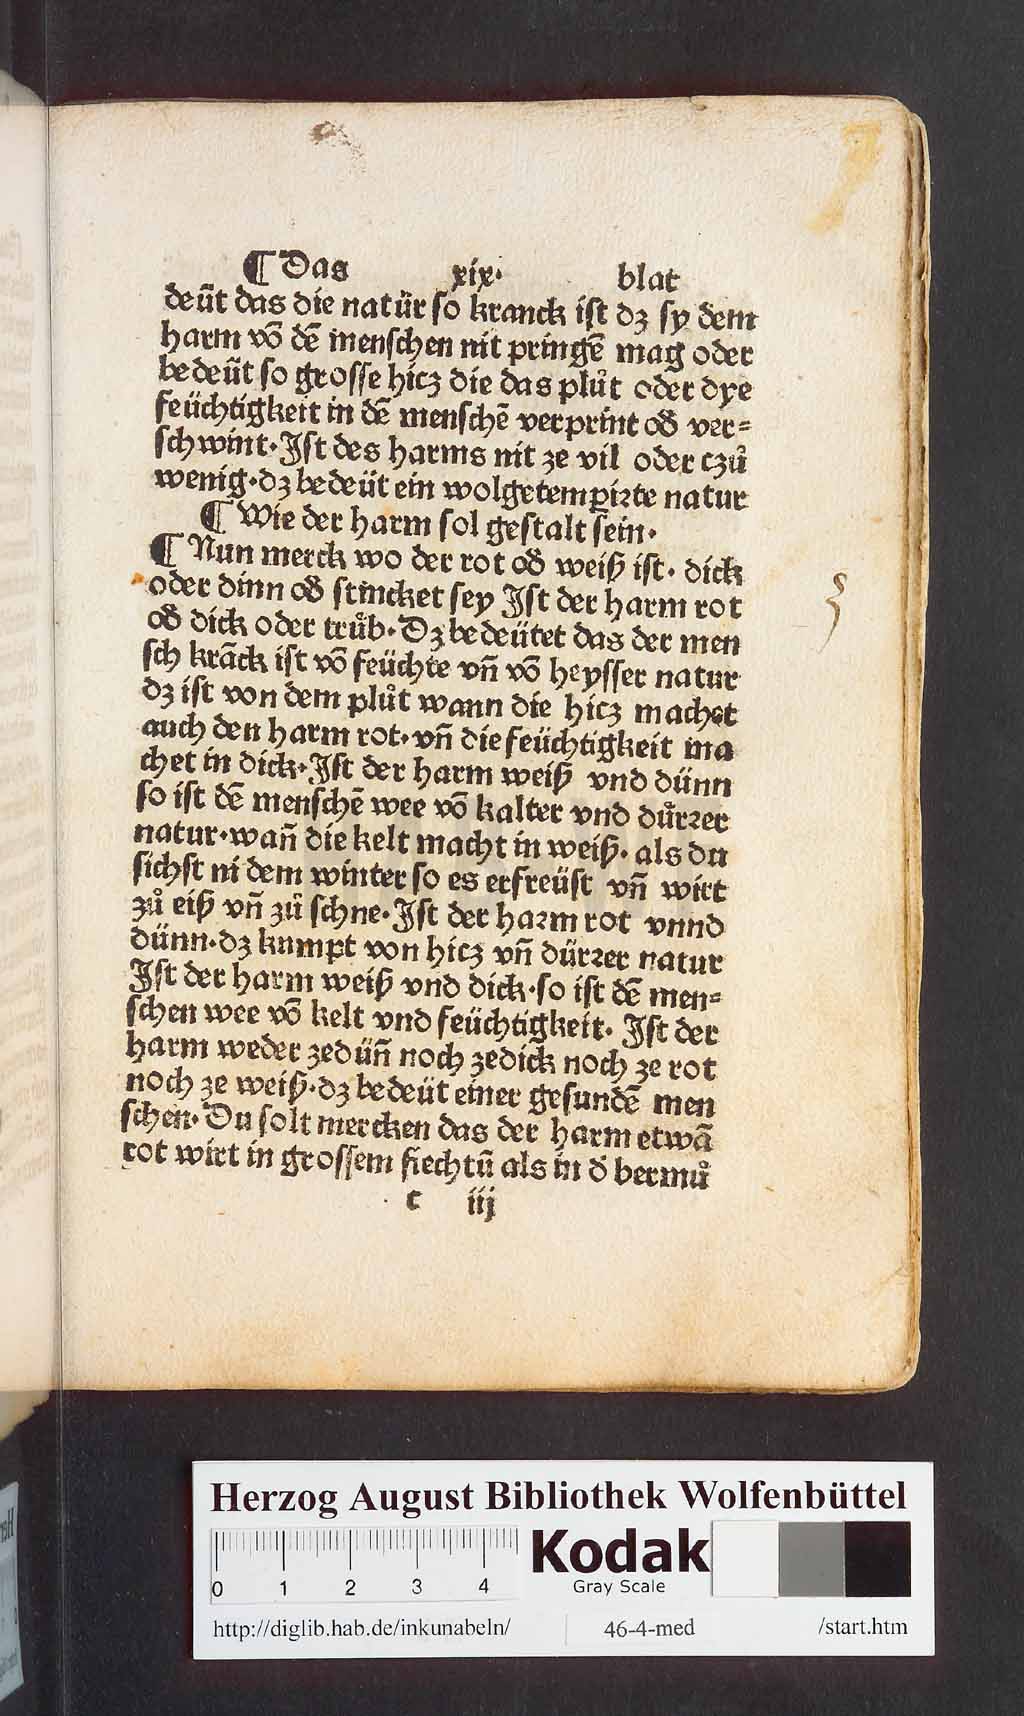 ¶ Das xix· blat
deũt das die natür so kranck ist dz sy dem
harm võ dẽ menschen nit pringẽ mag oder
bedeũt so grosse hicz die das plůt oder dye
feüchtigkeit in dẽ menschẽ verprint oď ver=
schwint·Ist des harms nit ze vil oder czů
wenig·dz bedeüt ein wolgetempirte natur
¶ Wie der harm sol gestalt sein·
¶ Nun merck wo der rot oď weiß ist· dick
oder dinn oď stincket sey Ist der harm rot
oď dick oder trůb·Dz bedeütet das der men
sch krãck ist võ feüchte vñ võ heysser natur
dz ist von dem plůt wann die hicz machet
auch den harm rot·vñ die feüchtigkeit ma
chet in dick·Ist der harm weiß vnd dünn
so ist dẽ menschẽ wee võ kalter vnd důrꝛer
natur·wañ die kelt macht in weiß·als du
sichst ni dem winter so es erfreüst vñ wirt
zů eiß vñ zů schne·Ist der haꝛm rot vnnd
dünn·dz kumpt von hicz vñ dürꝛer natur
Ist der harm weiß vnd dick·so ist dẽ men=
schen wee võ kelt vnd feüchtigkeit· Ist der
harm weder zedüñ noch zedick noch ze rot
noch ze weiß·dz bedeüt einer gesundẽ men
schen·Du solt mercken das der harm etwã
rot wirt in grossem siechtũ als in ď bermů
c iij
Herzog August Bibliothek Wolfenbüttel
0 1 2 3 4
Kodak
Gray Scale
http://diglib.hab.de/inkunabeln/ 46-4-med /start.htm